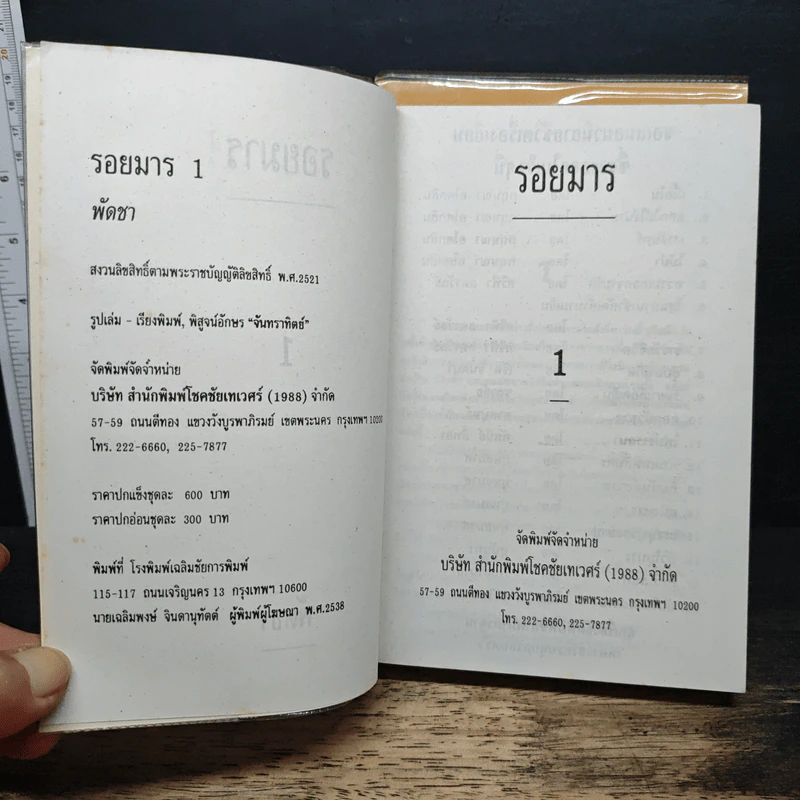 รอยมาร 1
พัดชา
สงวนลิขสิทธิ์ตามพระราชบัญญัติลิขสิทธิ์ พ.ศ.2521
รูปเล่ม - เรียงพิมพ์, พิสูจน์อักษร "จันทราทิตย์"
จัดพิมพ์จัดจำหน่าย
บริษัท สำนักพิมพ์โชคชัยเทเวศร์ (1988) จำกัด
57-59 ถนนตีทอง แขวงวังบูรพาภิรมย์ เขตพระนคร กรุงเทพฯ 10200
โทร. 222-6660, 225-7877
ราคาปกแข็งชุดละ 600 บาท
ราคาปกอ่อนชุดละ 300 บาท
พิมพ์ที่ โรงพิมพ์เฉลิมชัยการพิมพ์
115-117 ถนนเจริญนคร 13 กรุงเทพฯ 10600
นายเฉลิมพงษ์ จินดานุทัตต์ ผู้พิมพ์ผู้โฆษณา พ.ศ.2538
รอยมาร
1
จัดพิมพ์จัดจำหน่าย
บริษัท สำนักพิมพ์โชคชัยเทเวศร์ (1988) จำกัด
57-59 ถนนตีทอง แขวงวังบูรพาภิรมย์ เขตพระนคร กรุงเทพฯ 10200
โทร. 222-6660, 225-7877